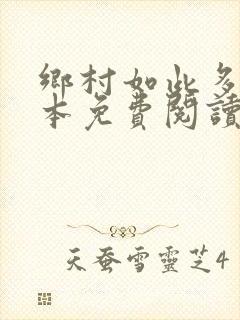 鄉村如此多
本免費閱讀
天蚕雪靈芝4